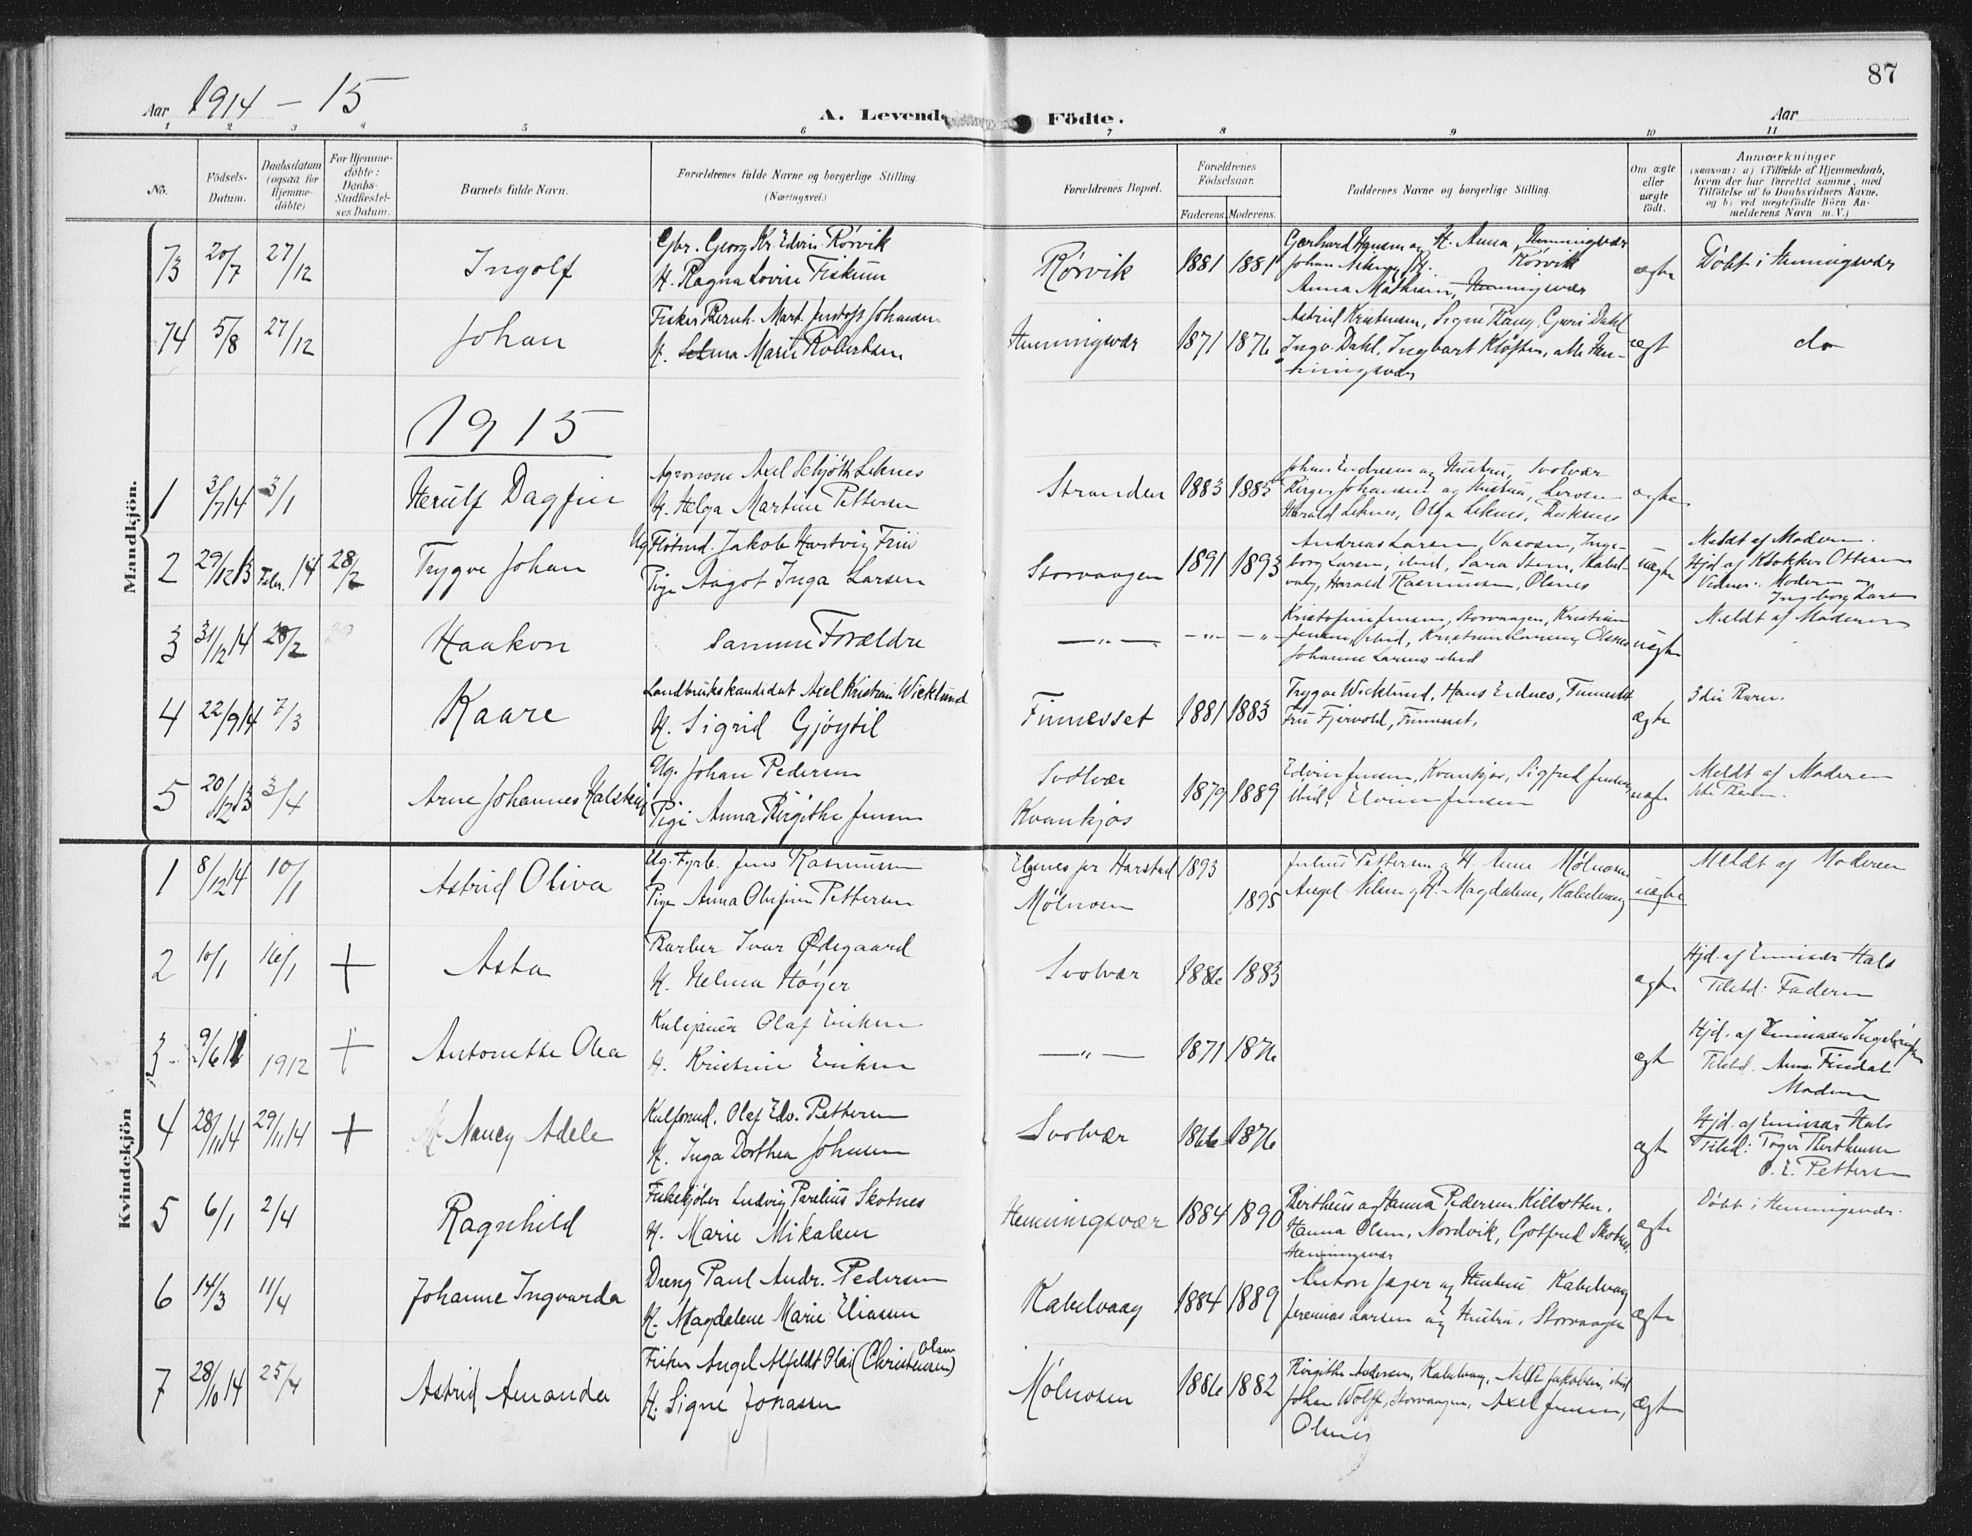 87
Aar 1914 – 15
A. Levende Födte.
Aar
1 2 3 4 5 6 7 8 9 10 11
No.
Födsels-Datum.
Daabsdatum (ogsaa for Hjemme-döbte)
For Hjemme-döbte: Daabs-Stadfæstel-ses Datum.
Barnets fulde Navn.
Forældrenes fulde Navne og borgerlige Stilling. (Næringsvei.)
Forældrenes Bopæl.
Forældrenes Födselsaar.
Faderens. Moderens.
Faddernes Navne og borgerlige Stilling.
Om ægte eller uægte födt.
Anmærkninger
(saasom: a) i Tilfælde af Hjemmedaab, hvem der har forrettet samme, med Tilföielse af to Daabsvidners Navne, og b) ved uægtefödte Börn Anmelderens Navn m. V.)
Mandkjön.
73 20/7 27/12 Ingolf
Gbr. Georg Kr. Edvin Rørvik
H. Ragna Lovise Fiskum
Rørvik 1881 1881
Gerhard Hansen og H. Anna, Henningsvær
Rørvik
Anna Mathisen, Henningsvær
ægte Døbt i Henningsvær
74 5/8 27/12 Johan
Fisker Bernh. Mart. Johansen
H. Selma Marie Robertsen
Henningsvær 1871 1876
Astrid Kristensen, Signe Bang, Guri Dahl
Inga Dahl, Ingbart Kløften, alle Hen-
ningsvær
ægt do
1915
1 3/7 14 3/1 Herulf Dagfin
Agronom Axel Schjøth Leknes
H. Helga Martine Pettersen
Stranden 1883 1885
Johan Endresen og Hustru, Svolvær
Birger Johansen og Hustru,
Harald Leknes, Olga Leknes,
ægte
2 29/12 13 Febr. 14 28/2 Trygve Johan
Ug. Jakob Hartvig Friis
Pige Aagot Inga Larsen
Storvaagen 1891 1893
Andreas Larsen, Inge-
borg Larsen, ibid, Sara Steen, Kabel-
vaag, Harald Rasmussen, Olsnes
uægte
Meldt af Moderen.
Hjd. af Klokker Ottesen
Vidner: Moderen og
Ingeborg Larsen
3 31/12 14 28/2 Haakon
Samme Forældre
—„— —„— —„—
Jensen, Storvaagen, Kristian
Jensen, ibid, Kristian Larsen, Olsnes
Johanne Larsens ibid
uægte Meldt af Moderen
4 22/9 14 7/3 Kaare
Landbrukskandidat Axel Kristian Wicklund
H. Sigrid Gjøytil
Finnesset 1881 1883
Trygve Wicklund, Hans Eidnes, Finnesset
Fru Fjervold, Finnesset.
ægte 3die Barn.
5 20/12 13 3/4 Arne Johannes Halsteig
Ug. Johan Pedersen
Pige Anna Birgithe Jensen
Svolvær
Kvankjos
1879 1889
Edvin Jensen, Kvankjos, Sigfred Jensen,
ibid; Elvin Jensen
uægte
Meldt af Moderen
Kvindekjön
1 8/12 14 10/1 Astrid Oliva
Ug. Fyrb. Jens Rasmussen
Pige Anna Olufine Pettersen
Elgenes pr Harstad 1893
Mølnosen 1895
Julius Pettersen og H. Anne Mølnosen
Angel Nilsen og H. Magdalene, Kabelvaag
uægte Meldt af Moderen
2 10/1 16/1 + Asta
Barber Ivar Ødegaard
H. Helma Høyer
Svolvær 1886 1883
ægte
Hjd. af Emissær Hals
Tilsted: Faderen
3 9/6 1912 + Antonette Olea
Olaf Eriksen
H. Kristine Eriksen
—„— 1871 1876
ægte
Hjd. af Emissær
Tilsted. Anna Findal
Moderen
4 28/11 14 29/11 14 + Nancy Adele
Olaf Edv. Pettersen
H. Inga Dorthea Johnsen
Svolvær 1866 1876
ægte
Hjd. af Emissær Hals
Tilsted: Toger Berthensen
O. E. Pettersen
5 6/1 2/4 Ragnhild
Fiskekjøber Ludvig Parelius Skotnes
H. Marie Mikalsen
Henningsvær 1884 1890
Bertheus og Hanna Pedersen
Hanna Olsen, Nordvik, Gotfred Skotnes
Henningsvær
ægte Døbt i Henningsvær.
6 14/3 11/4 Johanne Ingvarda
Dreng Paul Andr. Pedersen
H. Magdalene Marie Eliasen
Kabelvaag 1884 1889
Anton Jæger og Hustru Kabelvaag
Jeremias Larsen og Hustru, Storvaagen
ægte
7 28/10 14 25/4 Astrid Amanda
Fisker Angel Alfeldt Olai (Christensen) Olsen
H. Signe Jonassen
Mølnosen 1886 1882
Birgithe Andersen, Kabelvaag, Jakobsen, ibid
Johan Wolff, Storvaagen, Axel Jensen,
Olsnes
ægte